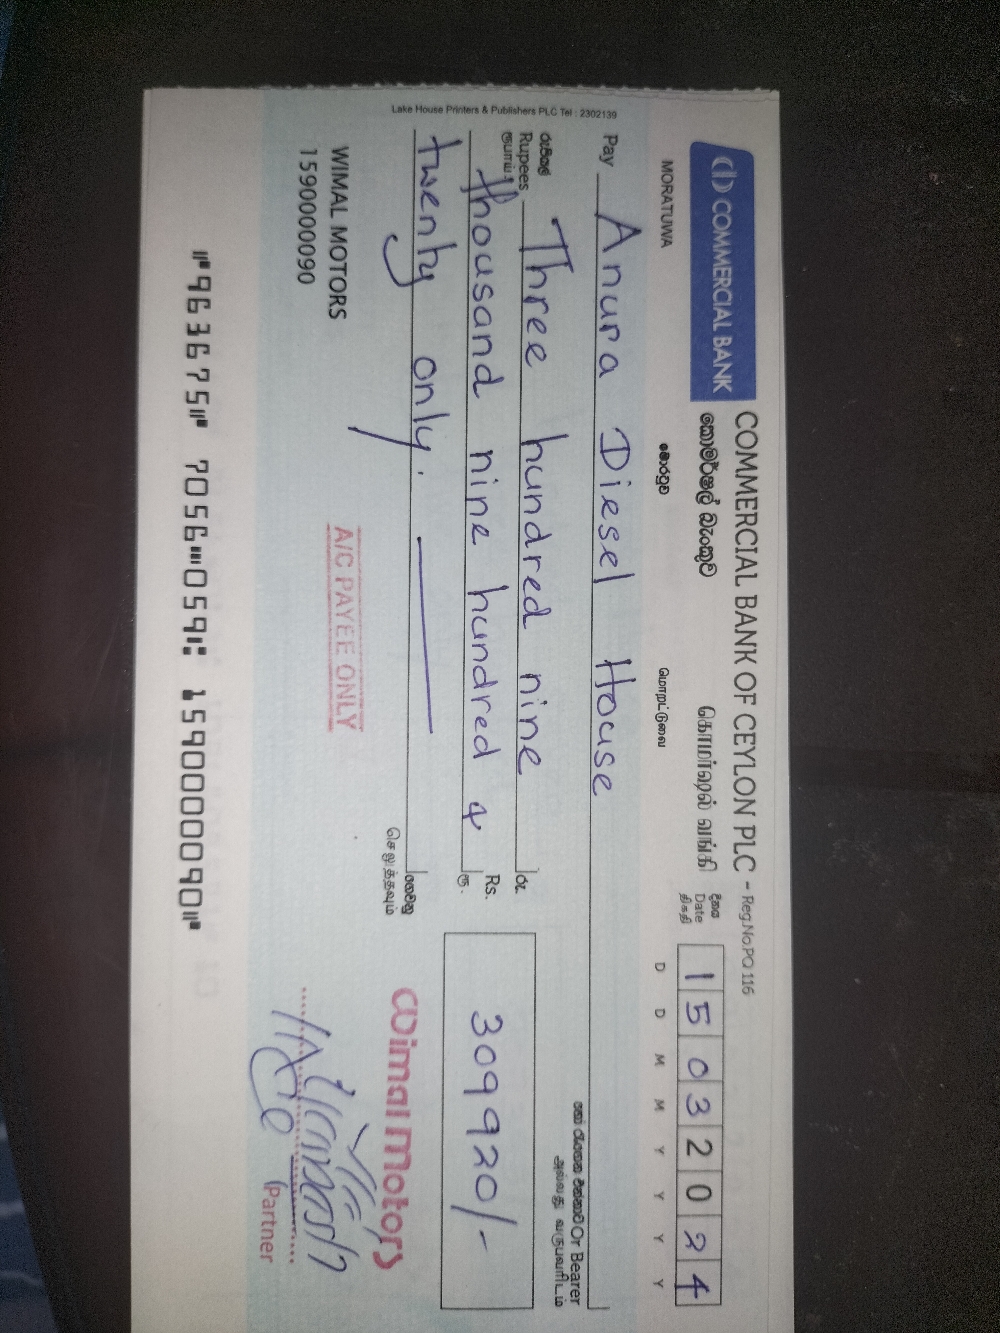 COMMERCIAL BANK
COMMERCIAL BANK OF CEYLON PLC - Reg.No.PQ 116
කොමර්ෂල් බැංකුව
கொமர்ஷல் வங்கி
MORATUWA
මොරටුව
மொறட்டுவை
දිනය
Date
திகதி
1 5 0 3 2 0 2 4
D D M M Y Y Y Y
Pay Anura Diesel House
හෝ රැගෙන එන්නාට Or Bearer
அல்லது வருபவரிடம்
රුපියල්
Rupees
ரூபாய்
Three hundred nine
thousand nine hundred &
twenty only.
රු.
Rs.
ரூ.
309920/-
ගෙවනු
செலுத்தவும்
Lake House Printers & Publishers PLC Tel : 2302139
WIMAL MOTORS
1590000090
A/C PAYEE ONLY
Wimal Motors
Partner
⑈963675⑈ 7056⑉059⑆ 1590000090⑈